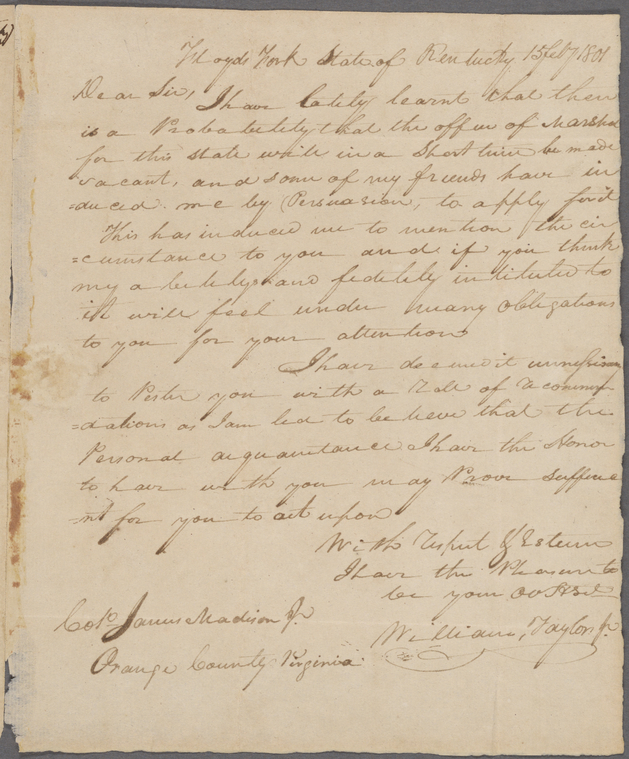 Floyds Fork State of Kentucky 15 feby 1801
Dear Sir, I have lately learnt that there
is a Probabelity that the office of Marshal
for this state will in a Short time be made
vacant, and som of my friends have in
=duced me by Persuasion, to apply for it
This has induced me to mention the cir
=cumstance to you and if you think
my abelitys and fedelity intituled to
it will feel under many obligations
to you for your attention
I have deemed it unnessisary
to Pester you with a Tale of Recommen
=dations as I am led to beleeve that the
Personal acquaintance I have the Honor
to have with you may Prove Suffice
=nt for you to act upon
With Respect & Esteem
I have the Pleasure to
be your Ob Hbl
William, Taylor Jr.
Colo. James Madison Jr
Orange County Virginia